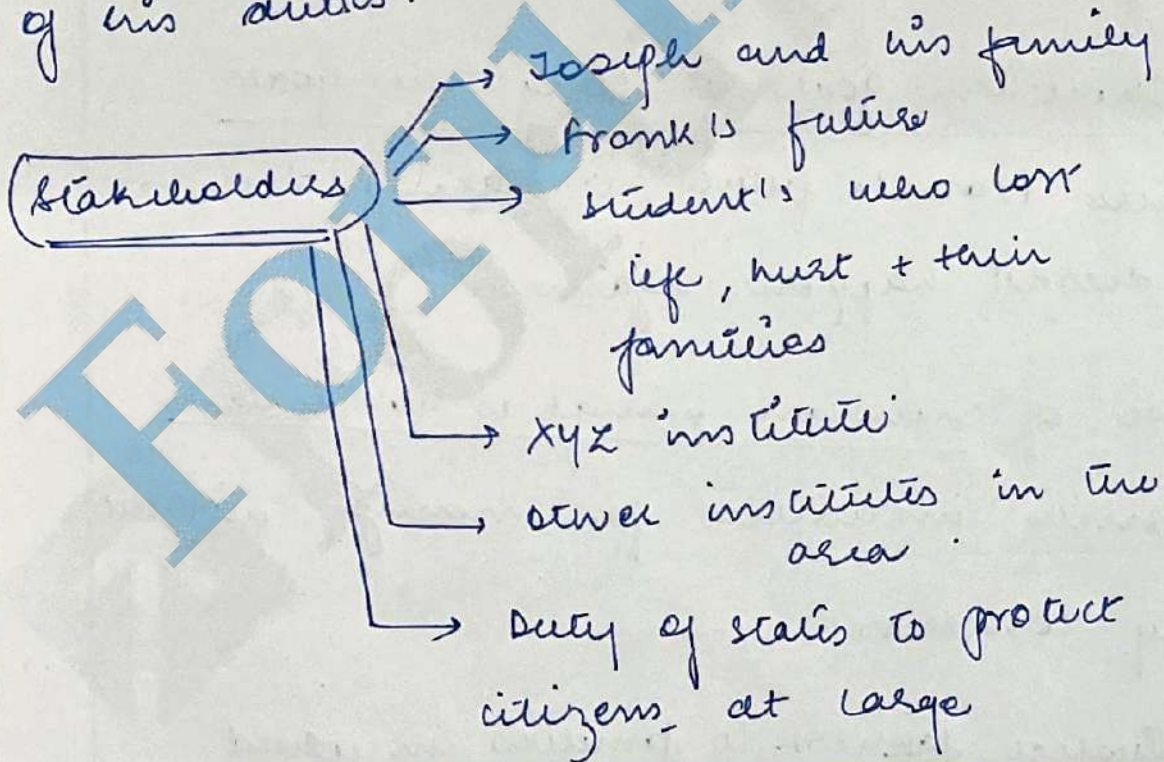 of his duties.
Joseph and his family
Stakeholders
Frank's future
student's who lost
life, hurt + their
families
XYZ institute
other institutes in the
area.
Duty of states to protect
citizens at large
Forum